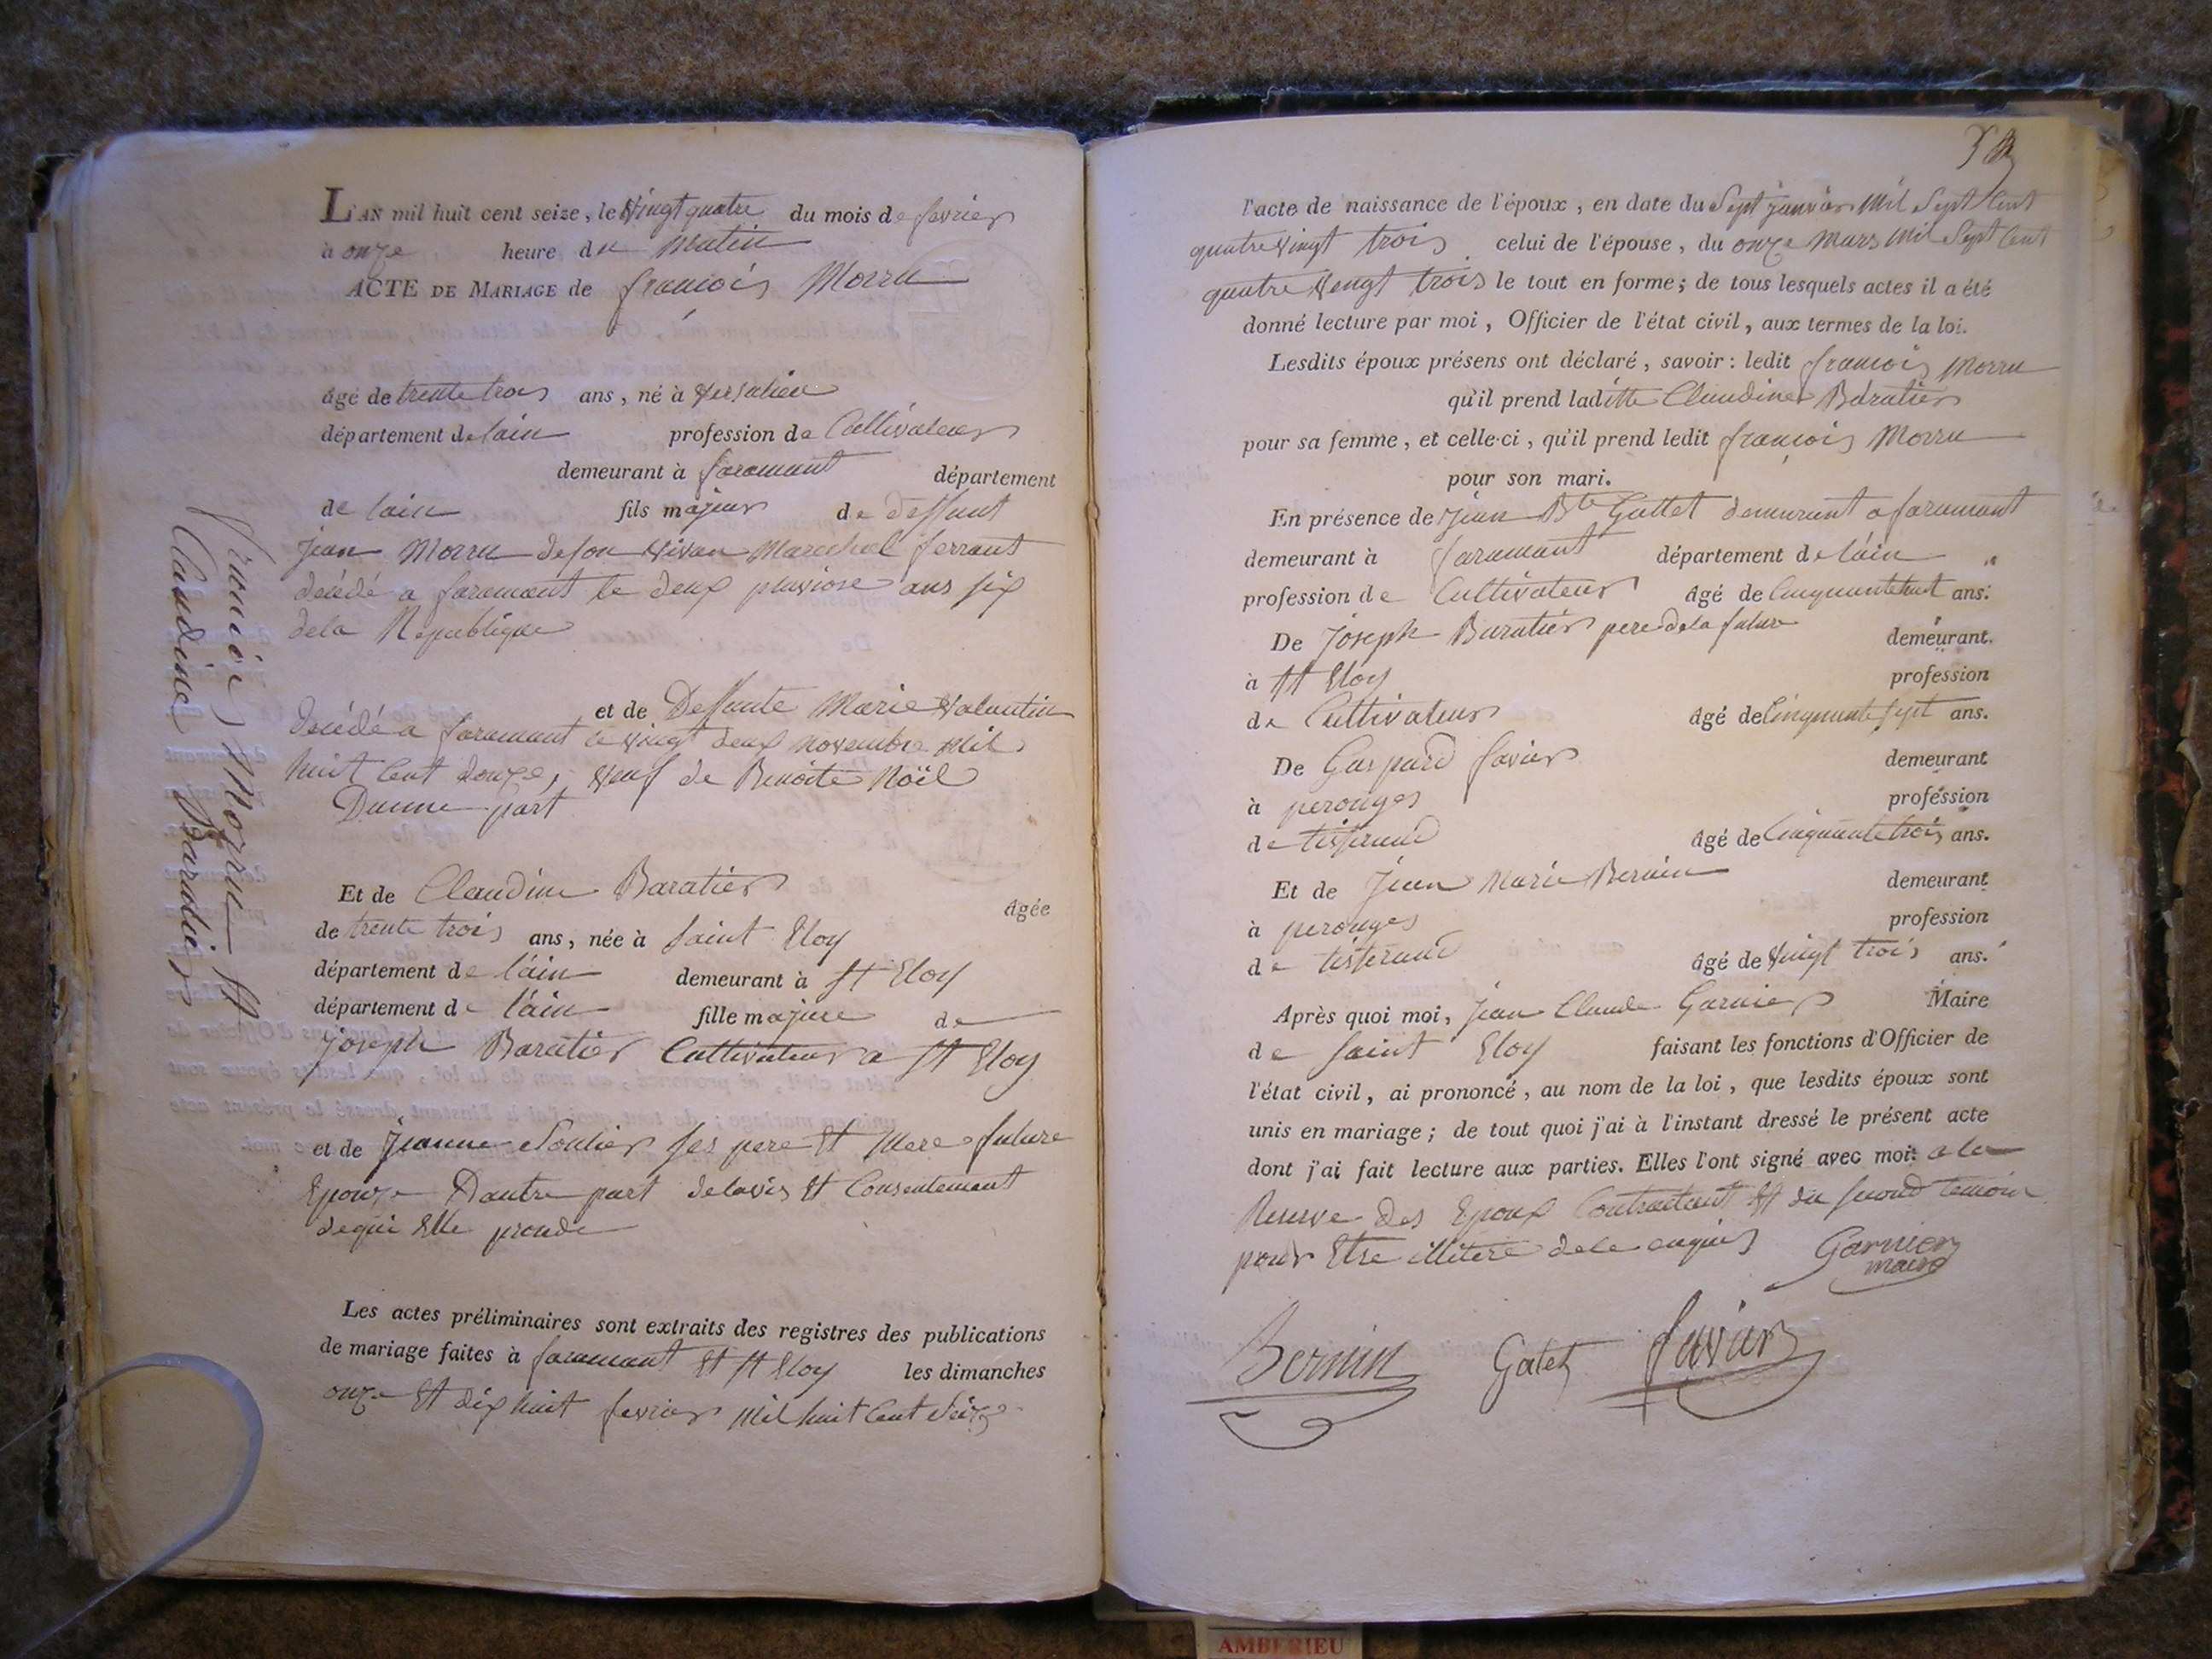 L'AN mil huit cent seize, le vingt quatre du mois de fevrier
à onze heure du matin
ACTE DE MARIAGE de françois Morru
âgé de trente trois ans, né à Versalieu
département de lain profession de Cultivateur
demeurant à faramant département
de lain fils majeur de deffunt
jean Morru de son vivan marechal ferrant
decédé a faramant le deux pluviose ans six
dela Republique
et de Deffunte Marie Valantin
decédé a faramant le vingt deux novembre mil
huit cent douze, veuf de Benoite Noël
Dunne part
Et de Claudine Baratier âgée
de trente trois ans, née à saint Eloy
département de lain demeurant à st Eloy
département de lain fille majure de
joseph Baratier Cultivateur a st Eloy
et de jeanne Soulier ses pere et mere future
Epouze Dautre part delavis et Consentement
dequi Elle procude
Les actes préliminaires sont extraits des registres des publications
de mariage faites à faramant et st Eloy les dimanches
onze et dix huit fevrier mil huit cent seize
françois Morru et
Claudine Baratier
l'acte de naissance de l'époux, en date du sept janvier mil sept cent
quatre vingt trois celui de l'épouse, du onze mars mil sept cent
quatre vengt trois le tout en forme; de tous lesquels actes il a été
donné lecture par moi, Officier de l'état civil, aux termes de la loi.
Lesdits époux présens ont déclaré, savoir: ledit françois Morru
qu'il prend laditte Claudine Baratier
pour sa femme, et celle-ci, qu'il prend ledit françois Morru
pour son mari.
En présence de jean Bte Gattet demeurant a faramant
demeurant à faramant département de láin
profession de Cultivateur âgé de Cinquantehuit ans.
De joseph Baratier pere dela future demeurant.
à st Eloy profession
de Cultivateur âgé de Cinquante sept ans.
De Gaspard favier demeurant
à perouges profession
de tisserand âgé de Cinquante trois ans.
Et de jean Marie Bernin demeurant
à perouges profession
de tisserand âgé de vingt trois ans.
Après quoi moi, jean Claude Garnier Maire
de saint Eloy faisant les fonctions d'Officier de
l'état civil, ai prononcé, au nom de la loi, que lesdits époux sont
unis en mariage; de tout quoi j'ai à l'instant dressé le présent acte
dont j'ai fait lecture aux parties. Elles l'ont signé avec moi: a la
Reserve des Epoux Contractant et du second temoin
pour Etre illiteré dece enquis Garnier
maire
Bernin Galet favier
AMBERIEU